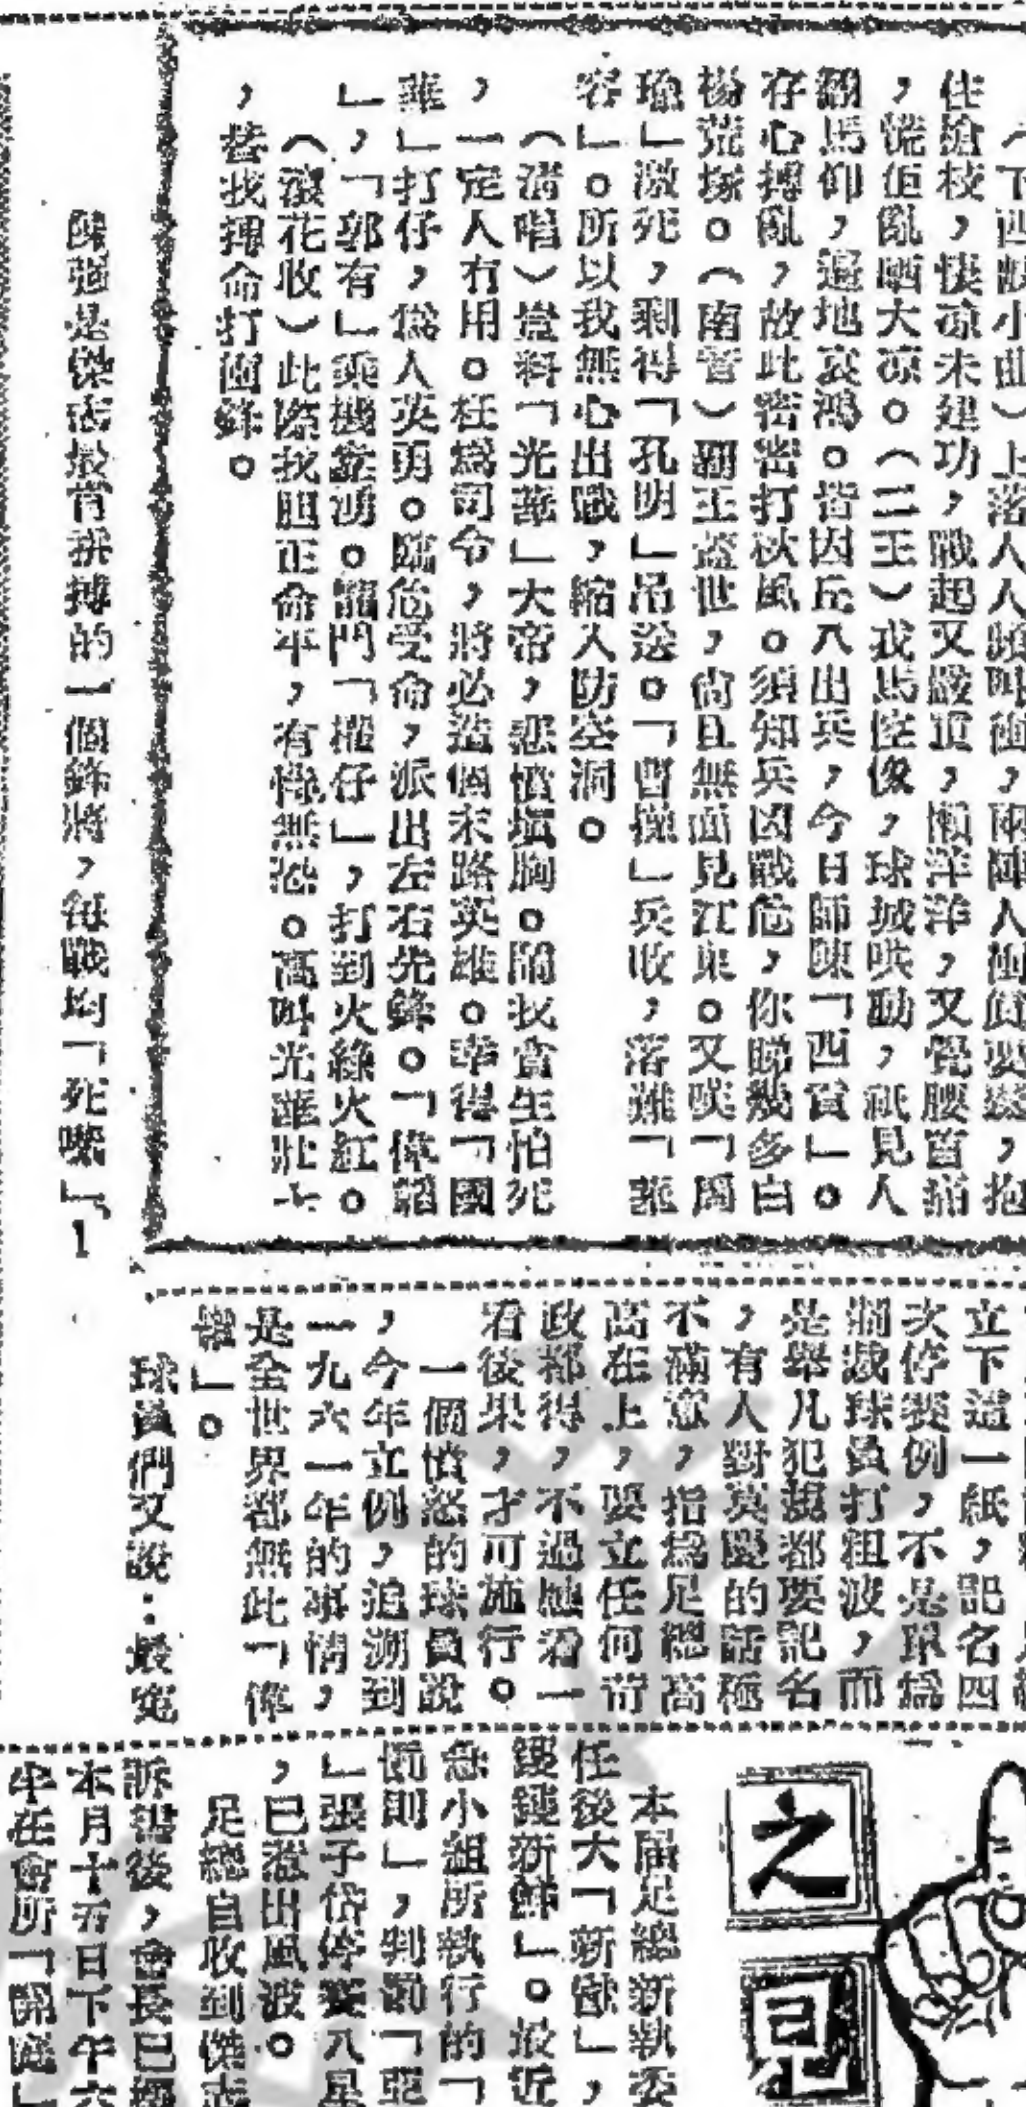 （下西皮小曲）上落人人
住槍枝，快凉未建功，戰起又
，慌佢亂晒大凉。（二王）戎馬倥傯，球城哄動，祇見人
翻馬仰，遍地哀鴻。皆因丘八出兵，今日師陳「西賓」。
存心搏亂，故此密密打秋風。須知兵凶戰危，你睇幾多白
楊荒塚。（南音）霸王蓋世，尚且無面見江東。又咲「周
瑜」激死，剩得「孔明」吊送。「曹操」兵收，落難「華
容」。所以我無心出戰，縮入防空洞。
（清唱）豈料「光華」大帝，惡憤塡胸。鬧我貪生怕死
，一定人冇用。枉為司令，將必造個末路英雄。幸得「國
華」打仔，為人英勇。臨危受命，派出左右先鋒。「偉韜
」，「郭有」乘機靠湧。龍門「權仔」，打到火綠火紅。
（滾花收）此際我胆正命平，有恃無恐。高叫光華壯士
，替我搏命打衝鋒。
陳强是傑志最肯拼搏的一個鋒將，每戰均「死𠺘」1
立下這一紙，記名四
次停賽例，不是單為
制裁球員打粗波，而
是舉凡犯規都要記名
，有人對莫慶的話極
不滿意，指為足總高
高在上，要立任何苛
政都得，不過應看一
看後果，才可施行。
一個憤怒的球員說
，今年立例，追溯到
一九六一年的事情，
是全世界都無此「偉
舉」。
球員們又說：最寃
之
己
本屆足總新執委
任後大「新猷」，
鏗鏗新鮮」。最近
急小組所執行的「
罰則」，判罰「亞
」張子岱停賽八星
，已惹出風波。
足總自收到傑志
訴書後，會長已擇
本月十五日下午六
半在會所「開庭」